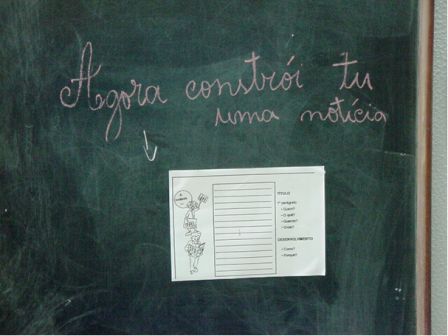 Agora constrói tu
uma notícia
TÍTULO
1º parágrafo
- Quem?
- O quê?
- Quando?
- Onde?
DESENVOLVIMENTO
- Como?
- Porquê?